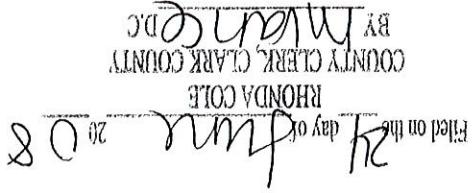 Filed on the 24 day of June 20 08
RHONDA COLE
COUNTY CLERK, CLARK COUNTY
BY D.C